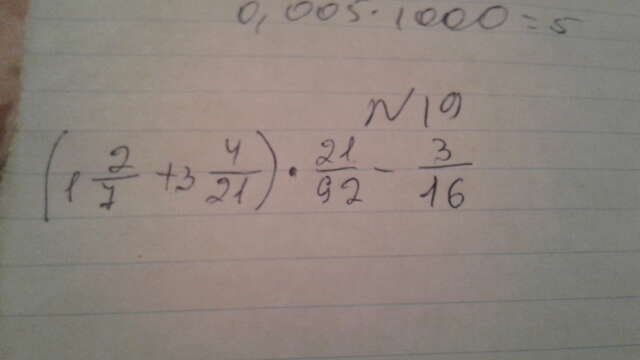 0,005·1000=5
N19
(1 2/7 +3 4/21)·21/92-3/16